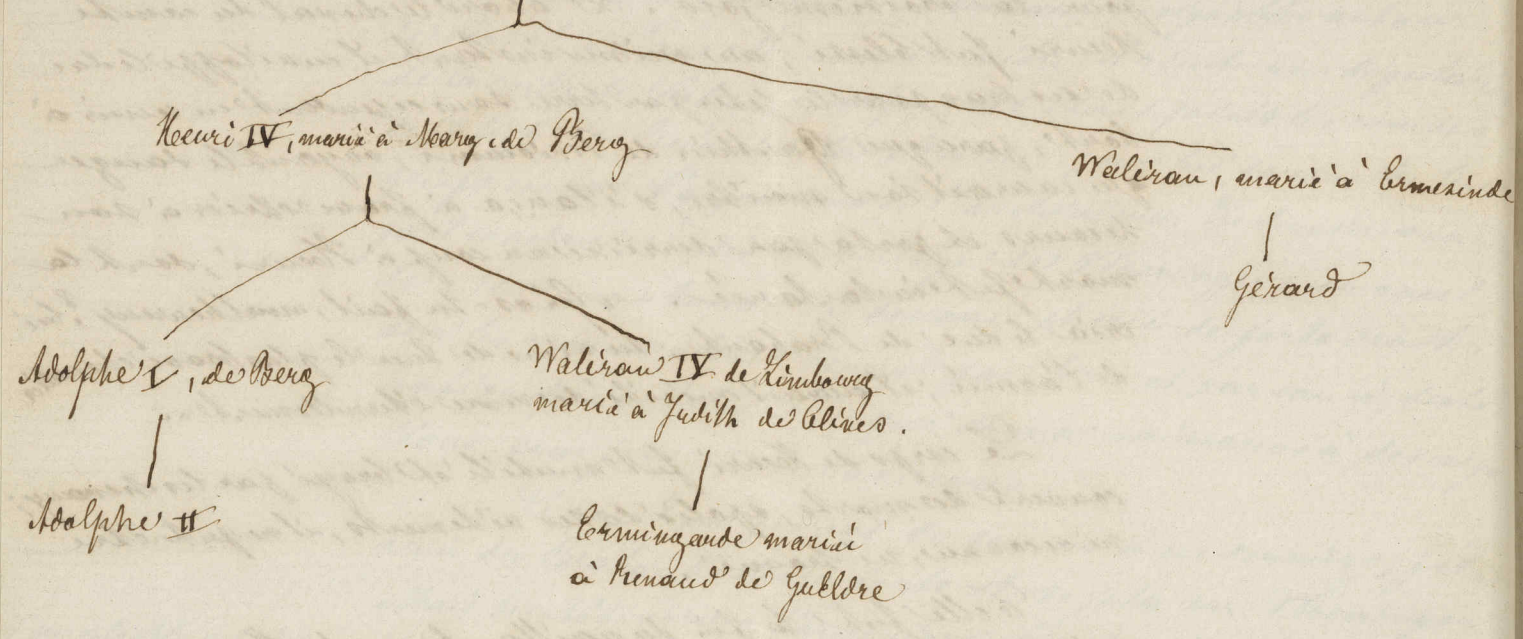 Henri IV, marié à Marg. de Berg
Waléran, marié à Ermesinde
Gérard
Adolphe I, de Berg
Waléran IV de Limbourg
marié à Judith de Clèves.
Adolphe II
Ermingarde mariée
à Renaud de Gueldre